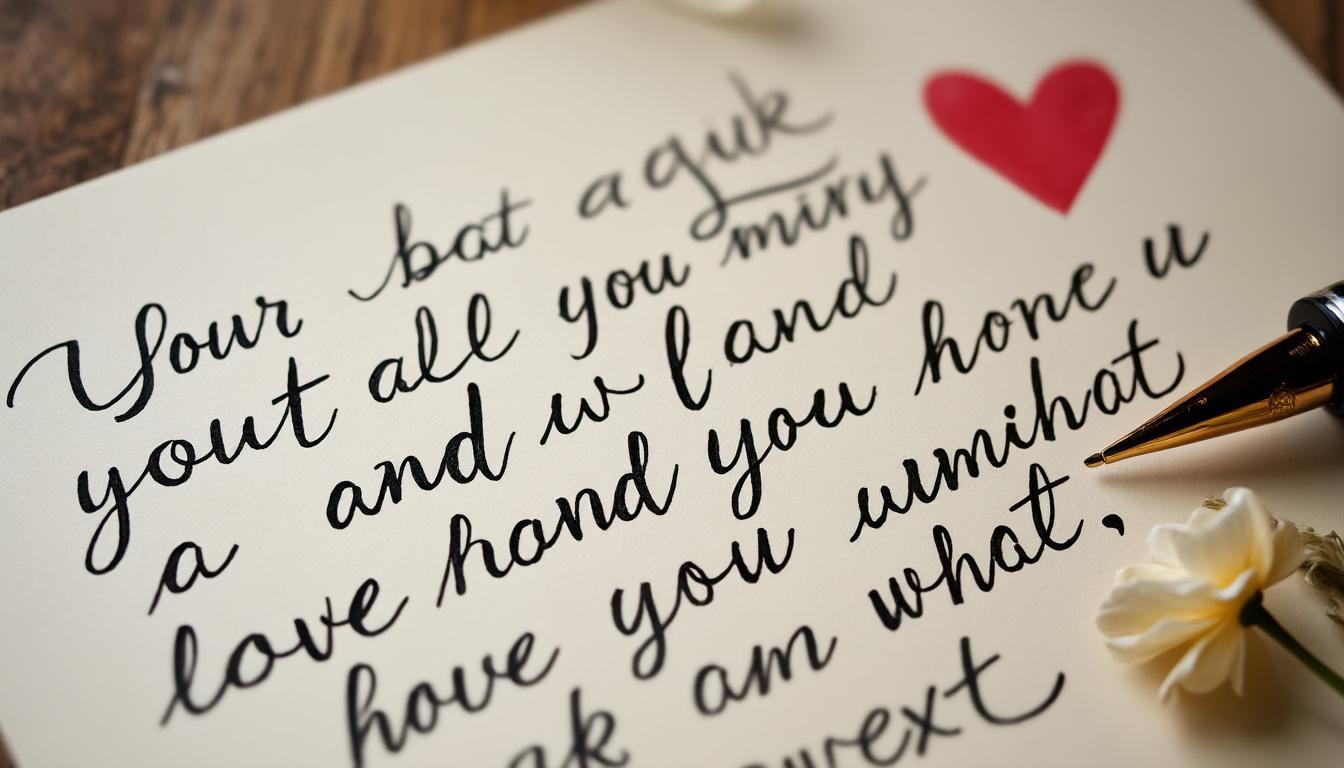 Your bat a guk
yout all you miry
a and w l and
love hand you hone u
hove you umihat
am what,